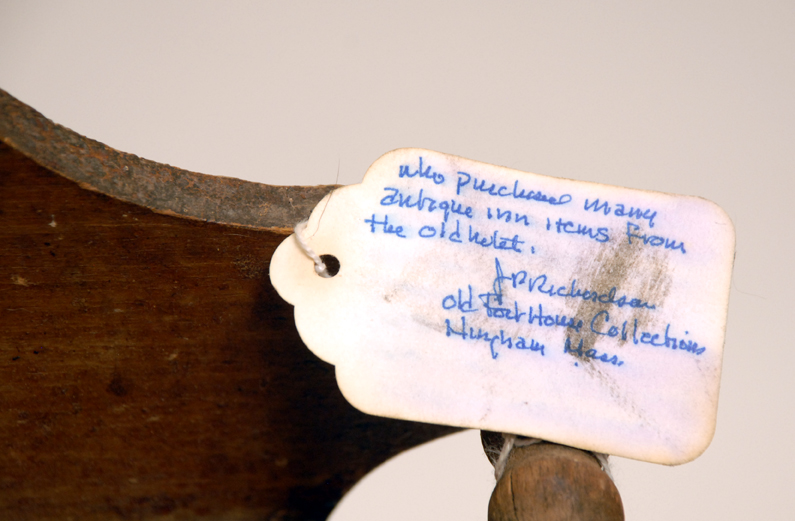 who purchased many
antique inn items from
the old hotel.
J.P. Richardson
Old Fort House Collections
Hingham Mass.